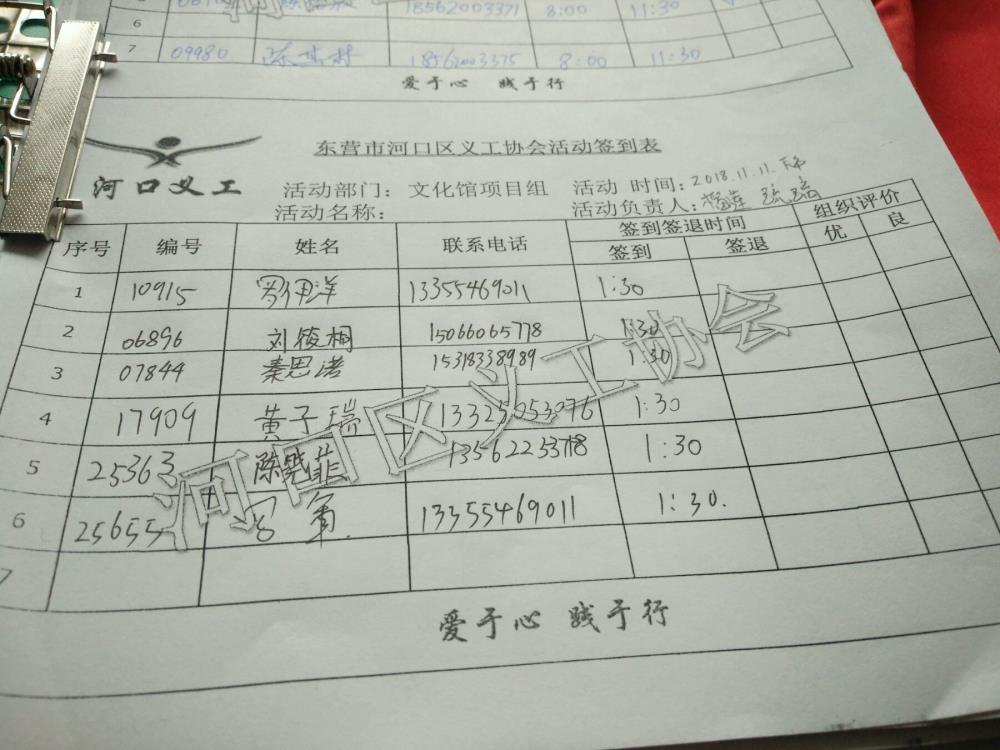 18562003371 8:00 11:30
7 09980 18562003375 8:00 11:30
爱于心 践于行
东营市河口区义工协会活动签到表
河口义工
活动部门: 文化馆项目组 活动 时间: 2018.11.11.下午
活动名称: 活动负责人:
序号 编号 姓名 联系电话 签到签退时间 组织评价
签到 签退 优 良
1 10915 13355469011 1:30
2 06896 刘筱桐 15066065778 1:30
3 07844 秦思诺 15318338989 1:30
4 17909 黄子瑞 13325053076 1:30
5 25363 陈晓菲 13562253718 1:30
6 25655 13355469011 1:30.
7
爱于心 践于行
河口区义工协会